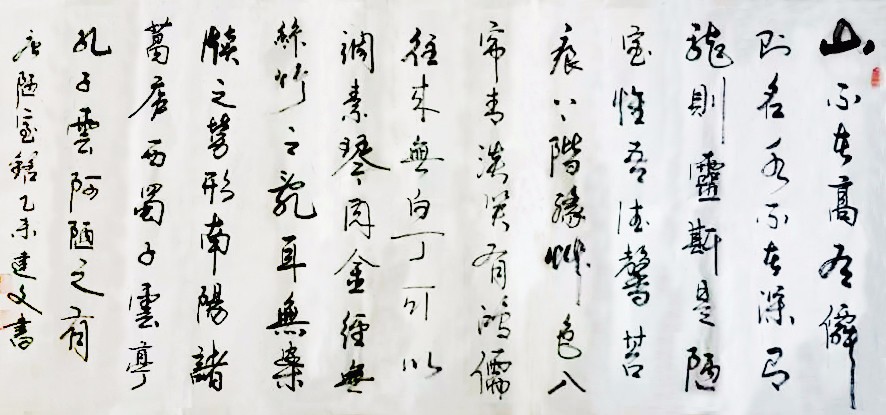 山不在高有僊
則名水不在深有
龍則靈斯是陋
室惟吾德馨苔
痕上階緣艸色入
帘青談笑有鴻儒
往來無白丁可以
調素琴閱金經無
絲竹之亂耳無案
牘之勞形南陽諸
葛廬西蜀子雲亭
孔子雲何陋之有
唐陋室銘乙未建文書